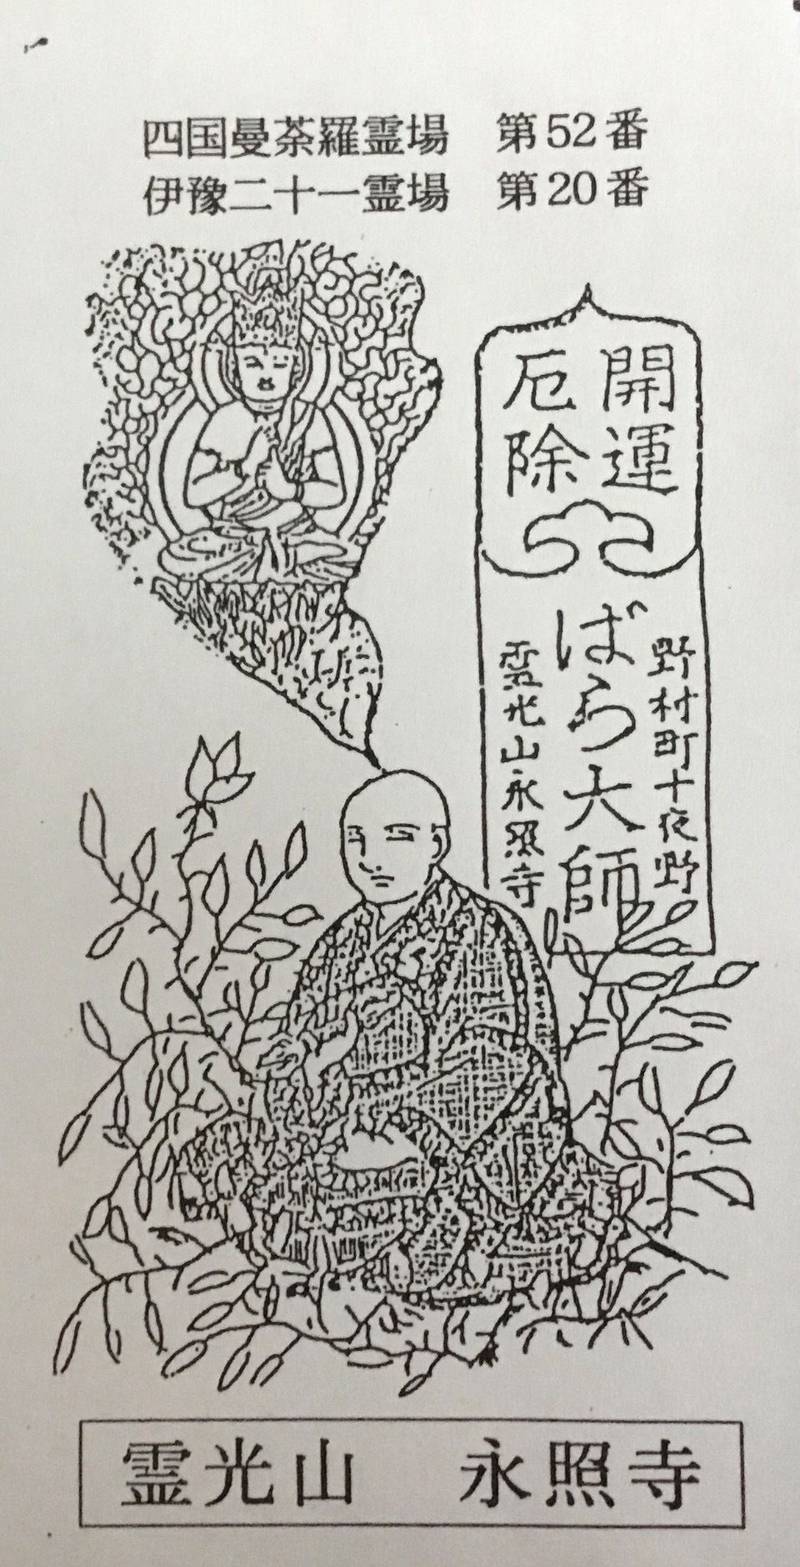 四国曼荼羅霊場　第52番
伊豫二十一霊場　第20番
開運
厄除
野村町十夜野
ばら大師
霊光山永照寺
霊光山　永照寺